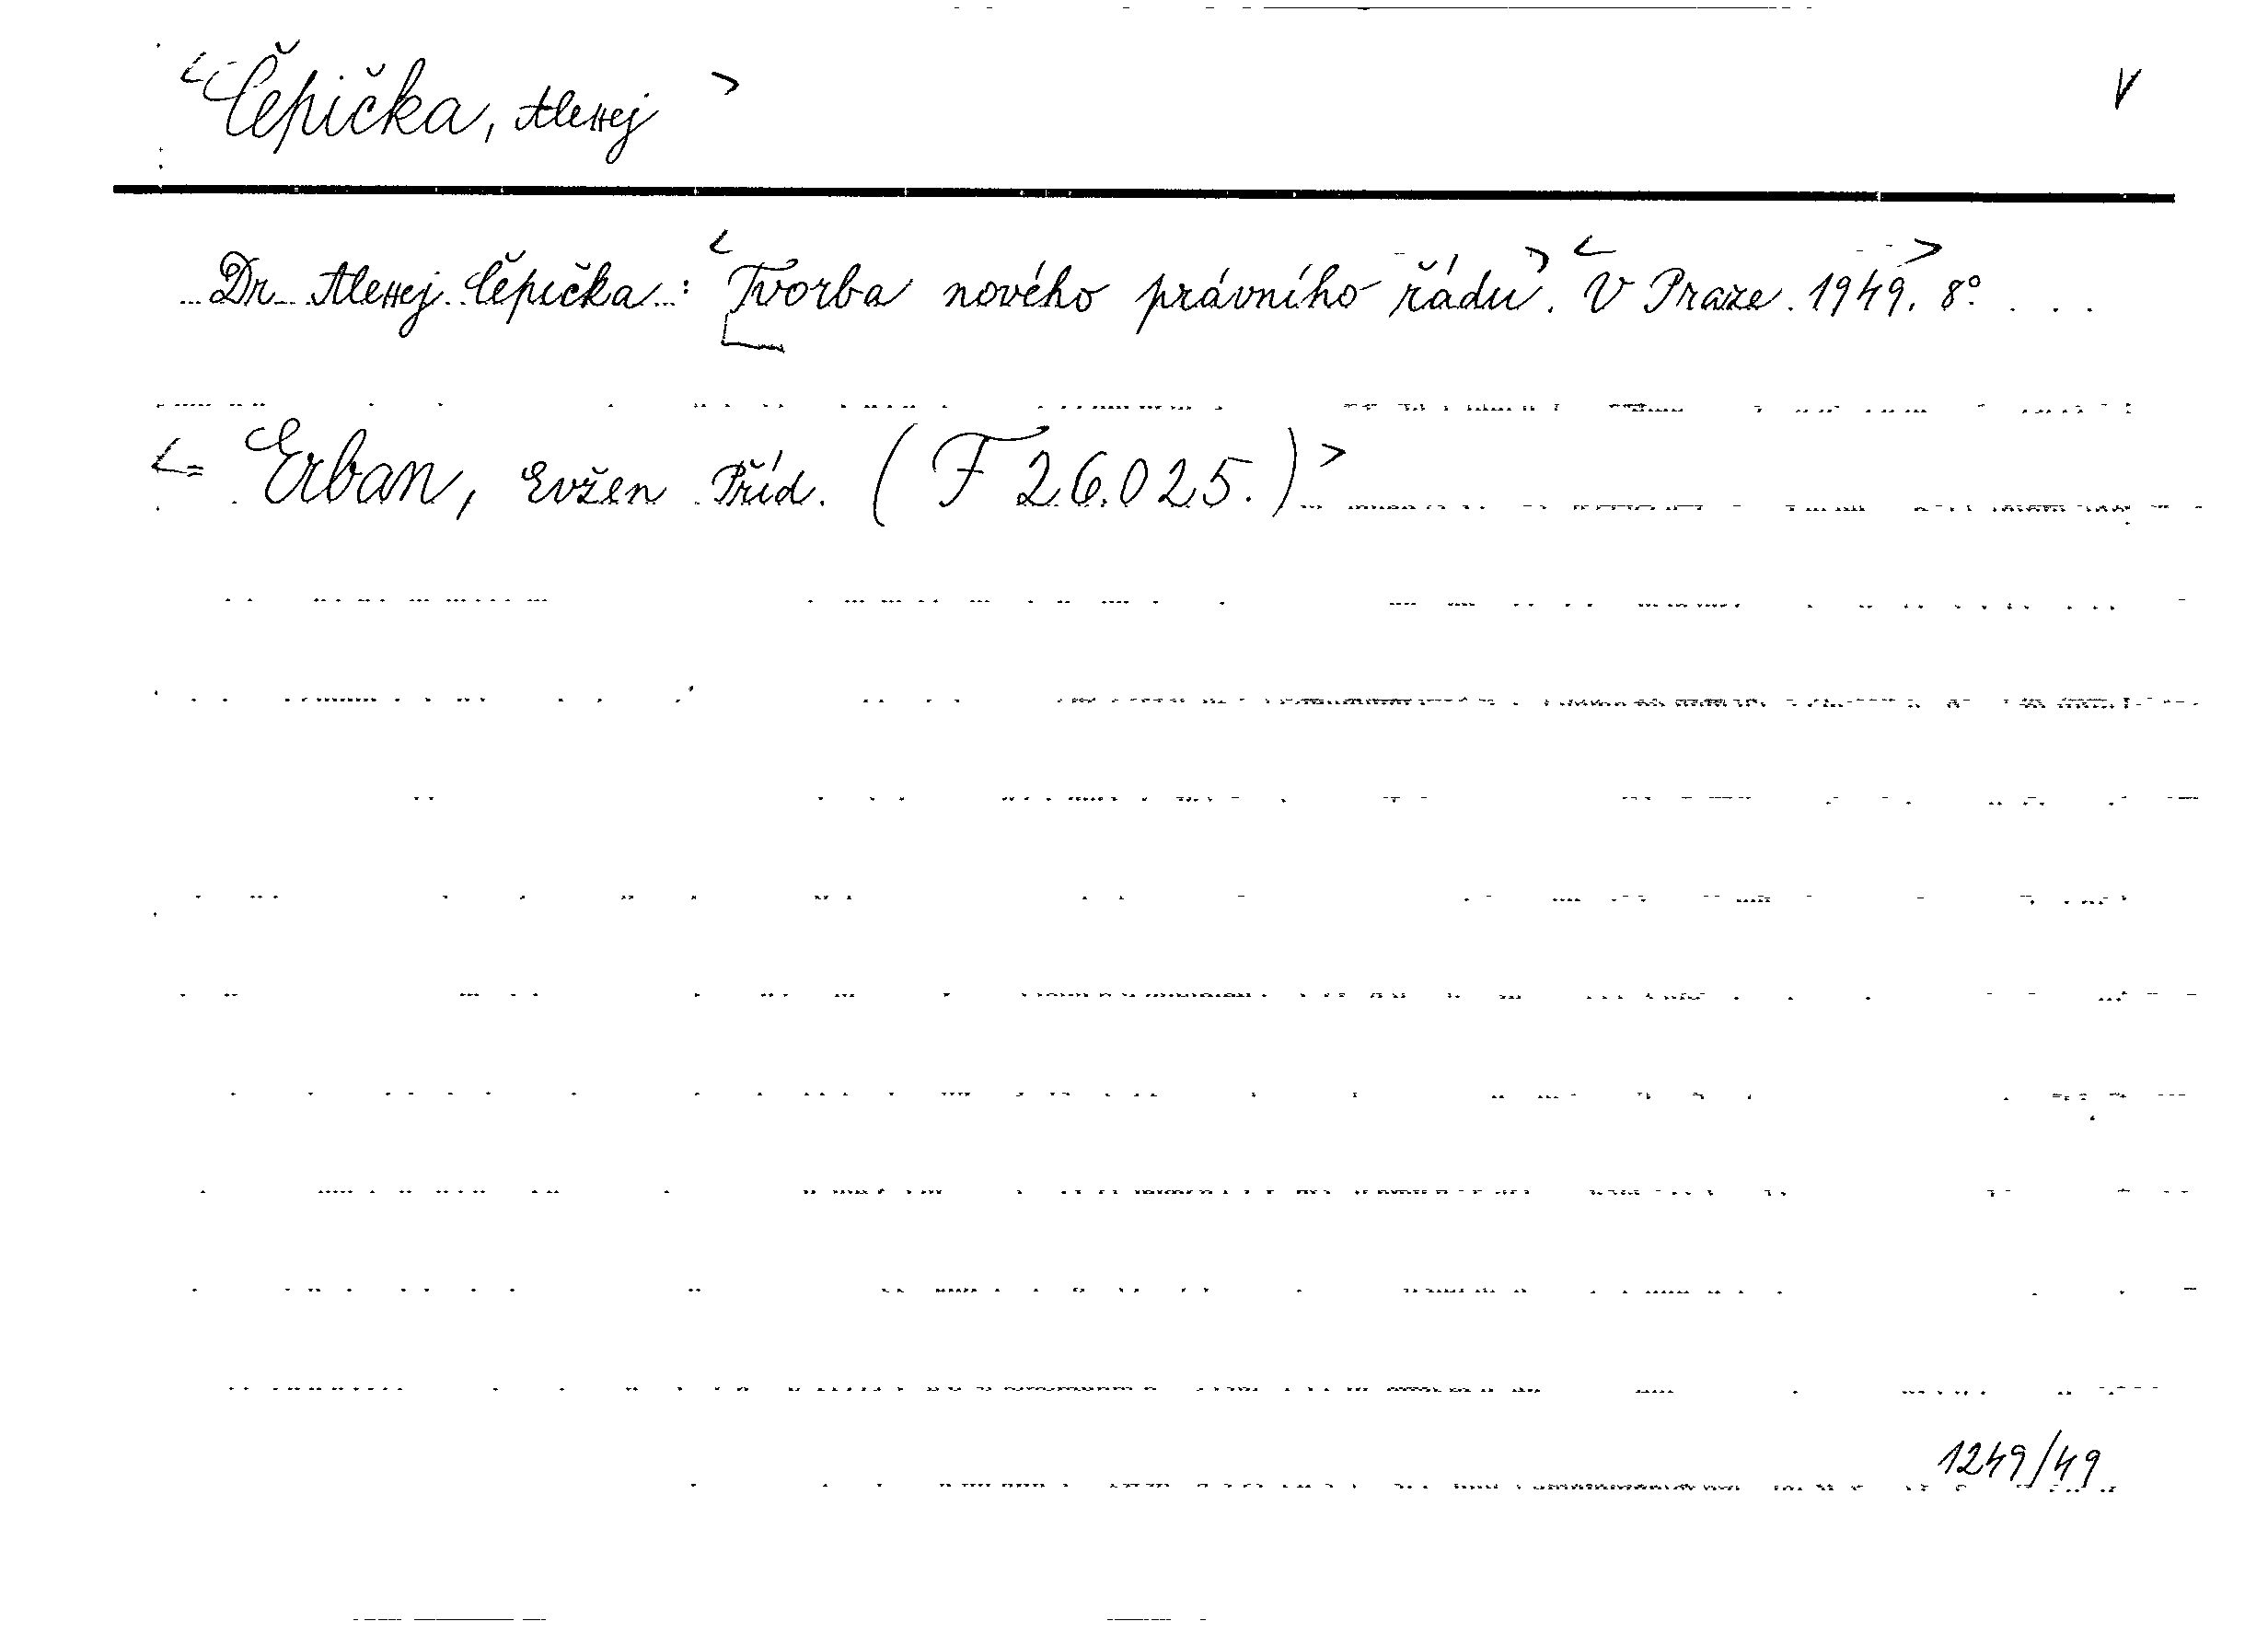 <Čepička, Alexej> V
Dr. Alexej Čepička: <Tvorba nového právního řádu>. <V Praze. 1949.> 8°. . . .
<= Erban, Evžen Příd. (F 26.025.)>
1249/49